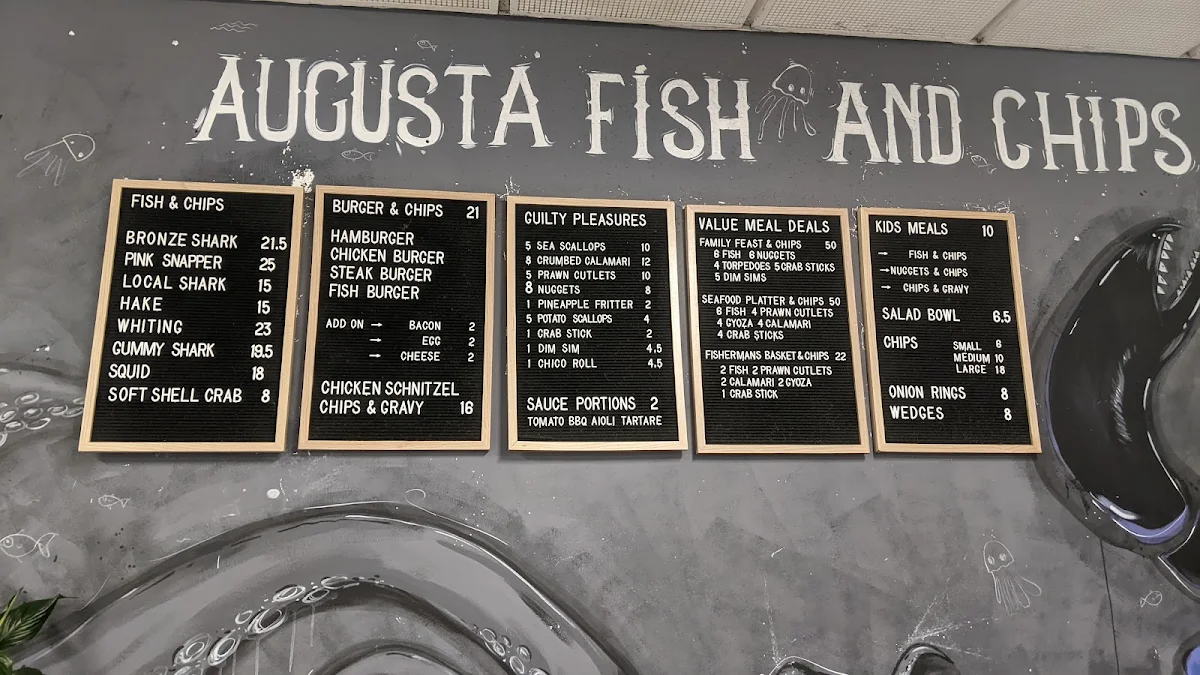 AUGUSTA FISH AND CHIPS
FISH & CHIPS
BRONZE SHARK 21.5
PINK SNAPPER 25
LOCAL SHARK 15
HAKE 15
WHITING 23
GUMMY SHARK 19.5
SQUID 18
SOFT SHELL CRAB 8
BURGER & CHIPS 21
HAMBURGER
CHICKEN BURGER
STEAK BURGER
FISH BURGER
ADD ON → BACON 2
→ EGG 2
→ CHEESE 2
CHICKEN SCHNITZEL
CHIPS & GRAVY 16
GUILTY PLEASURES
5 SEA SCALLOPS 10
8 CRUMBED CALAMARI 12
5 PRAWN CUTLETS 10
8 NUGGETS 8
1 PINEAPPLE FRITTER 2
5 POTATO SCALLOPS 4
1 CRAB STICK 2
1 DIM SIM 4.5
1 CHICO ROLL 4.5
SAUCE PORTIONS 2
TOMATO BBQ AIOLI TARTARE
VALUE MEAL DEALS
FAMILY FEAST & CHIPS 50
6 FISH 6 NUGGETS
4 TORPEDOES 5 CRAB STICKS
5 DIM SIMS
SEAFOOD PLATTER & CHIPS 50
6 FISH 4 PRAWN CUTLETS
4 GYOZA 4 CALAMARI
4 CRAB STICKS
FISHERMANS BASKET & CHIPS 22
2 FISH 2 PRAWN CUTLETS
2 CALAMARI 2 GYOZA
1 CRAB STICK
KIDS MEALS 10
→ FISH & CHIPS
→ NUGGETS & CHIPS
→ CHIPS & GRAVY
SALAD BOWL 6.5
CHIPS SMALL 6
MEDIUM 10
LARGE 18
ONION RINGS 8
WEDGES 8